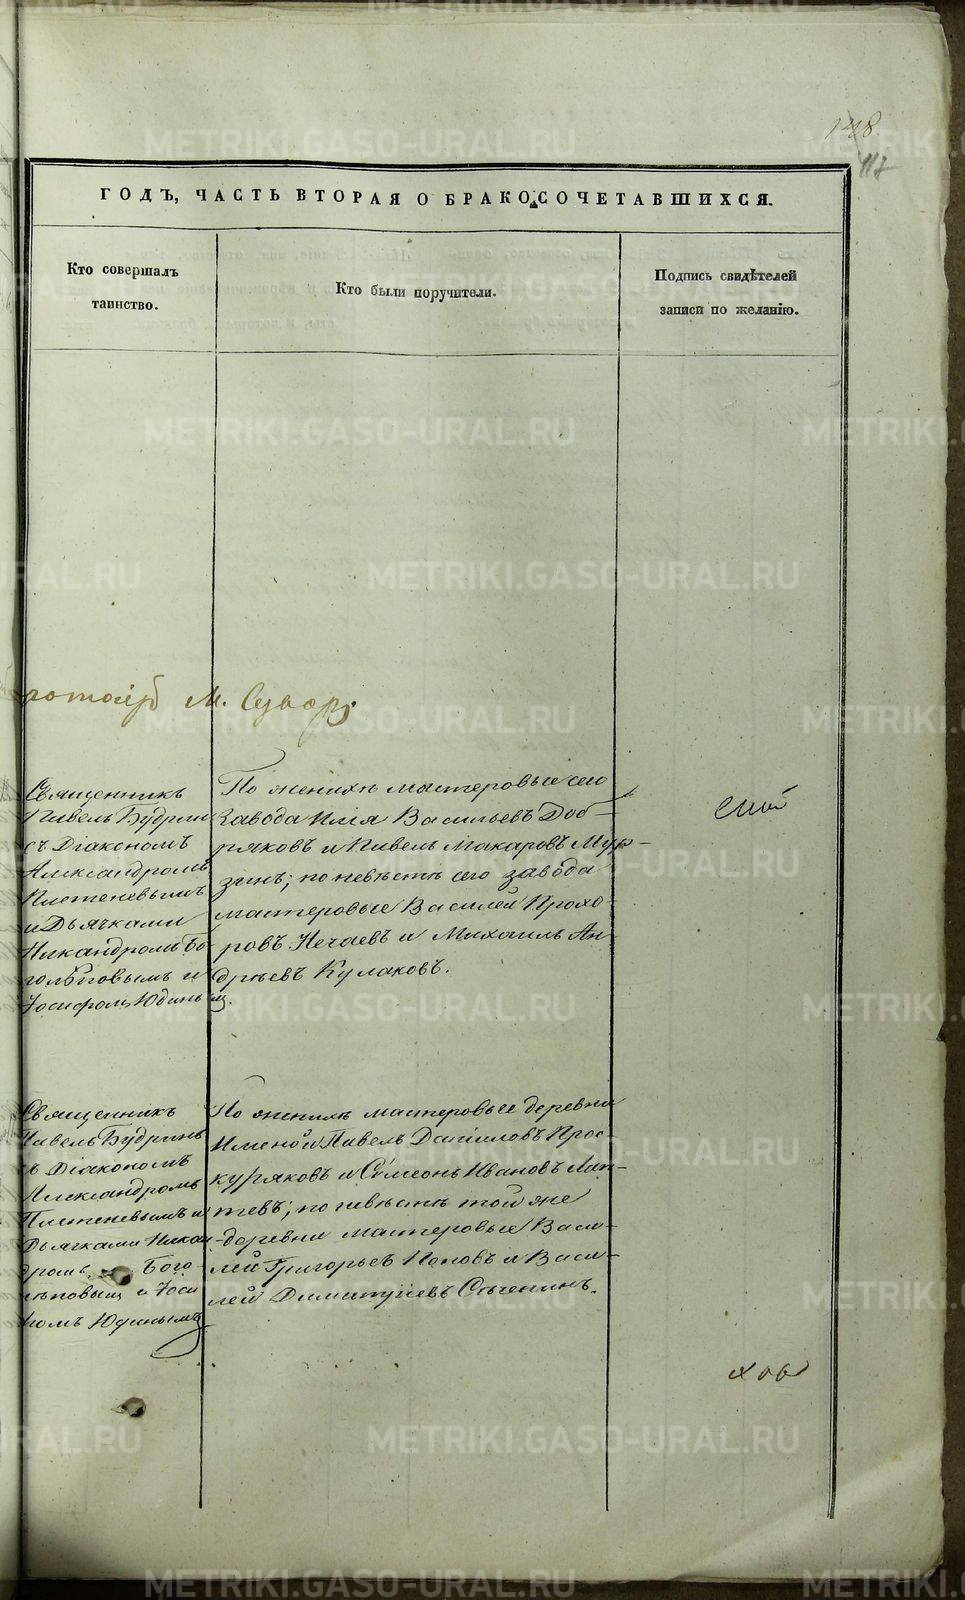 148
117
ГОДЪ, ЧАСТЬ ВТОРАЯ О БРАКОСОЧЕТАВШИХСЯ.
Кто совершалъ
таинство.
Кто были поручители.
Подпись свидѣтелей
записи по желанію.
М. Суворъ
Священникъ
Павелъ Будрин
съ Діакономъ
Александромъ
Плетеневымъ
и Дьячками
Никандромъ Бо
голѣповымъ и
Іосифомъ Юдинымъ.
По женихѣ мастеровые сего
завода Илія Васильевъ Доб-
ряковъ и Павелъ Макаровъ Мур-
зинъ; по невѣстѣ сего завода
мастеровые Василей Прохо-
ровъ Нечаевъ и Михаилъ Ан-
дрѣевъ Кулаковъ.
Священникъ
Павелъ Будринъ
съ Діакономъ
Александромъ
Плетеневымъ и
Дьячками Никан
дромъ Бого
лѣповымъ и Іоси
фомъ Юдинымъ
По женихѣ мастеровые деревни
Павелъ Даніиловъ Прос-
куряковъ и Сѵмеонъ Ивановъ Лап-
тевъ; по невѣстѣ той же
деревни мастеровые Васи-
лей Григорьевъ Поповъ и Васи-
лей Димитріевъ
METRIKI.GASO-URAL.RU